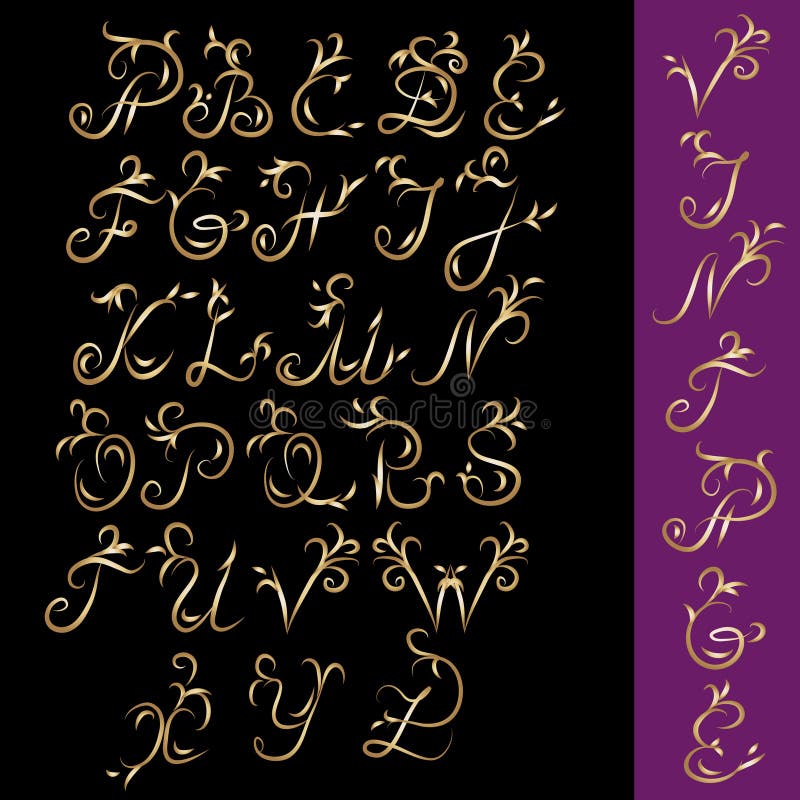 A B C D E
F G H I J
K L M N
O P Q R S
T U V W
X Y Z
V
I
N
T
A
G
E
dreamstime